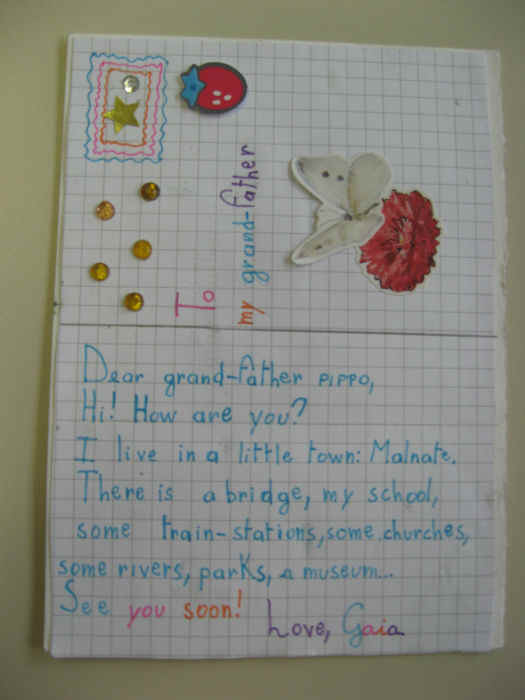 To
my grand-father
Dear grand-father PIPPO,
Hi! How are you?
I live in a little town: Malnate.
There is a bridge, my school,
some train-stations, some churches,
some rivers, parks, a museum...
See you soon!
Love, Gaia